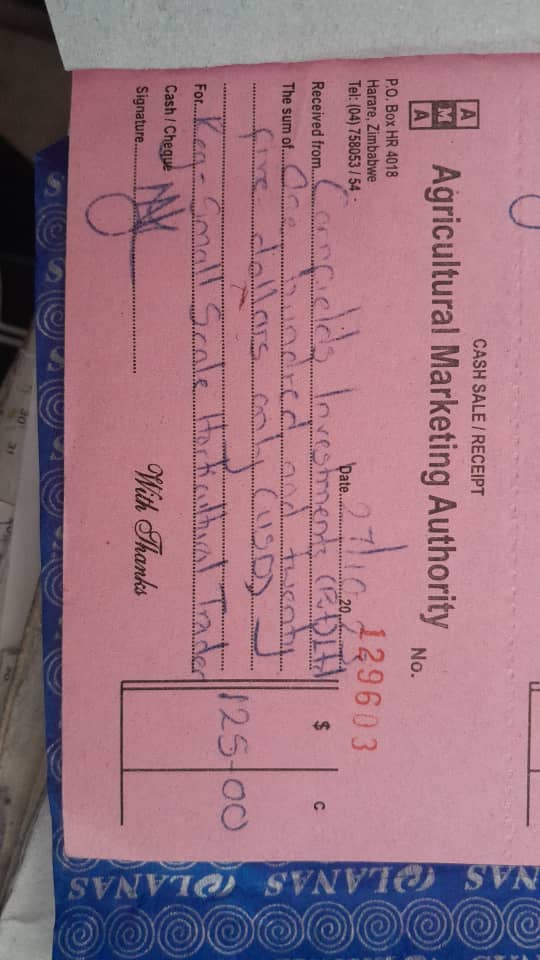 CASH SALE / RECEIPT
A
M
A
Agricultural Marketing Authority
P.O. Box HR 4018
Harare, Zimbabwe
Tel: (04) 758053 / 54
No. 129603
Date 27/10 20
Received from Cornfields Investments (Pvt) Ltd
The sum of One hundred and twenty
five dollars only (USD)
For Reg - Small Scale Horticultural Trader
$ C
125-00
Cash / Cheque
Signature
With Thanks
LANAS LANAS LANAS